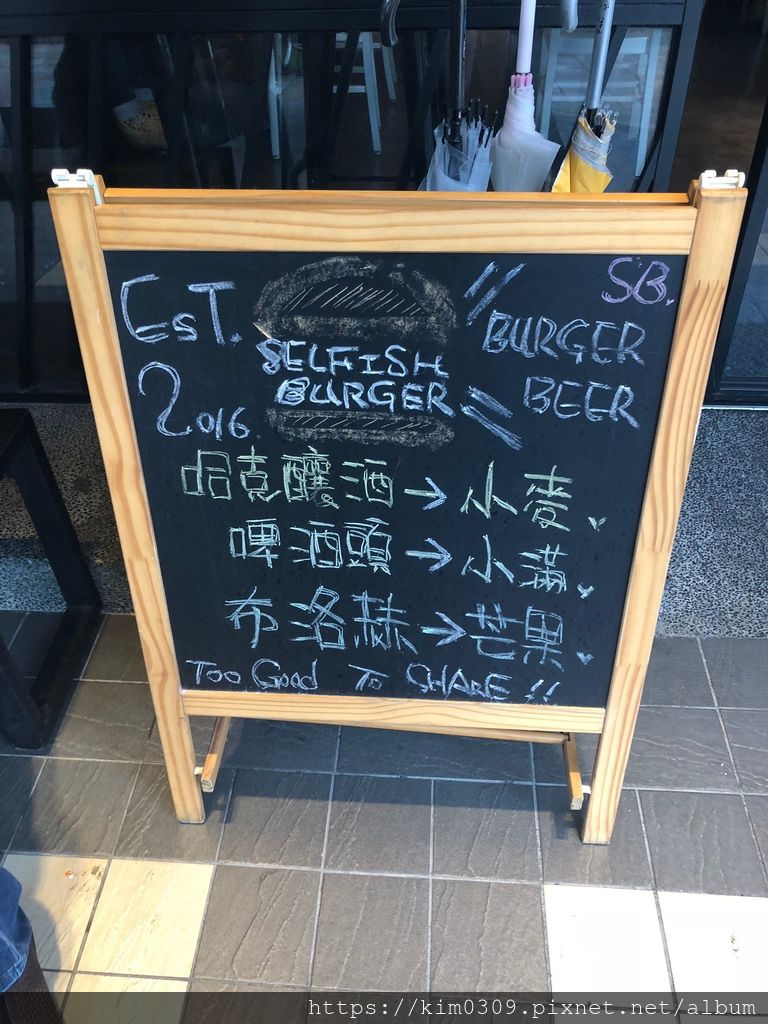 SB.
EST.
2016
SELFISH
BURGER
BURGER
BEER
哈克釀酒→小麥
啤酒頭→小滿
布洛赫→芒果
TOO GOOD TO SHARE!!
https://kim0309.pixnet.net/album